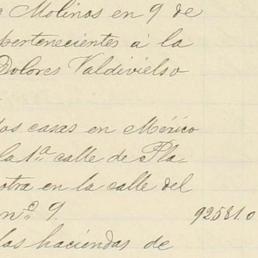 Molinos en 9 de
pertenecientes á la
Dolores Valdivielso
dos casas en México
la 1.ª calle de Pla
otra en la calle del
n.º 9. 92581.0
las haciendas de